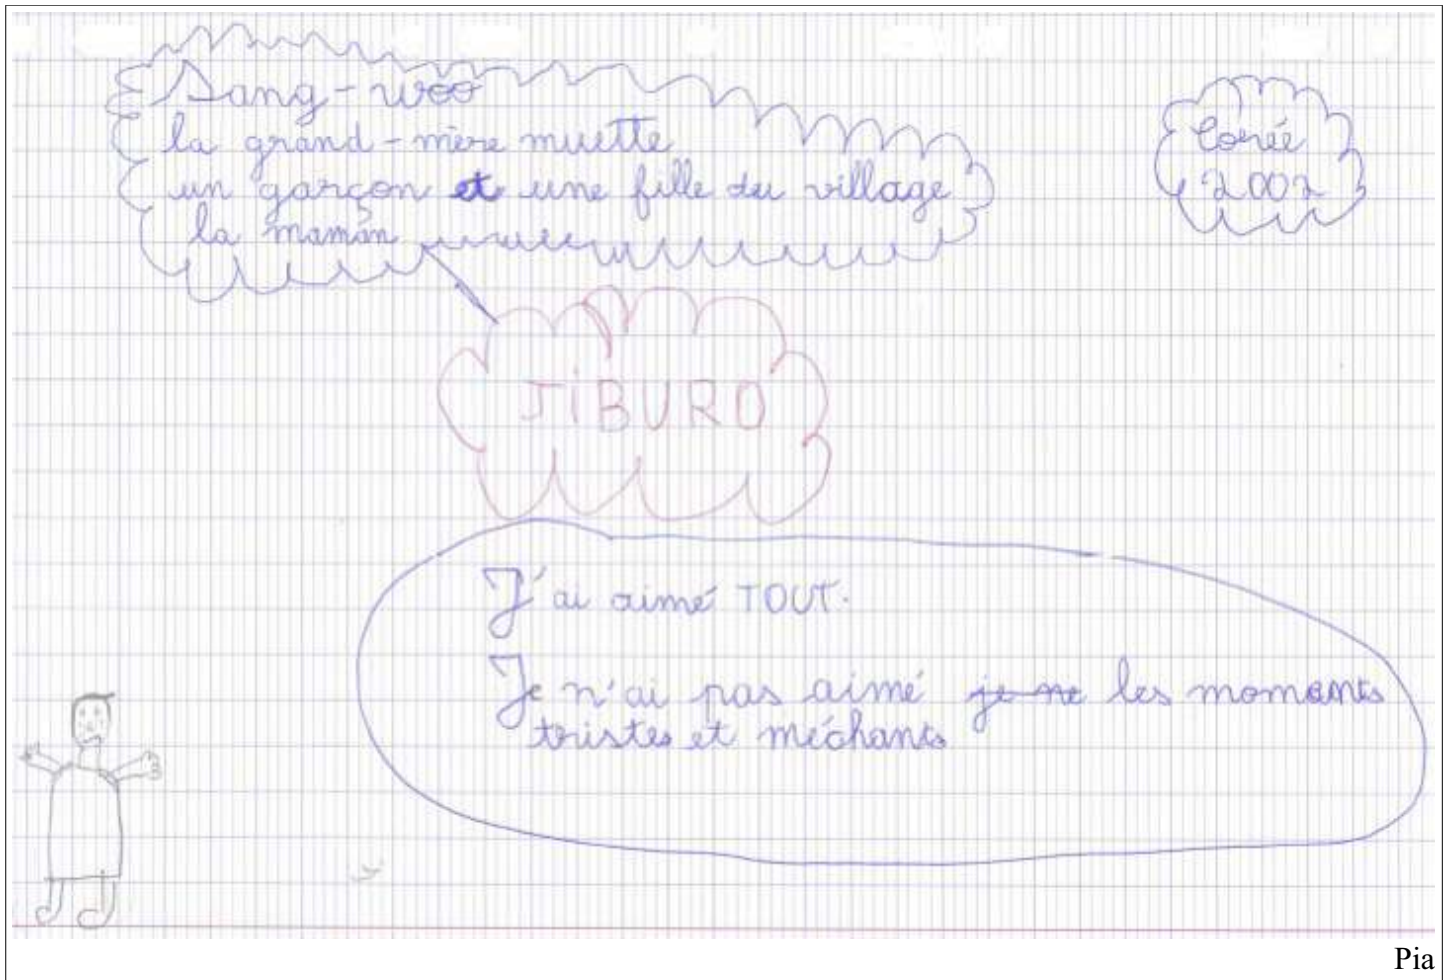 Sang-woo
la grand-mère muette
un garçon et une fille du village
la maman
Corée
2002
JiBURO
J'ai aimé TOUT.
Je n'ai pas aimé je ne les momants
tristes et méchants
Pia